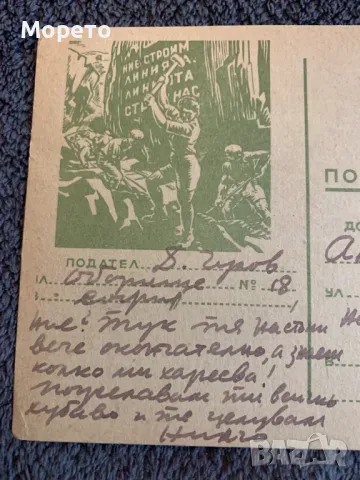 Морето
НИЕ СТРОИМ
ЛИНИЯТА
ЛИНИЯТА
СТРОИ НАС
ПО
ПОДАТЕЛ Д. Гуров
ДО
УЛ. Оборище № 18
УЛ
В
ние! Тук тя настъпи
вече окончателно, а знаеш
колко ми харесва!
Пожелавам ти всичко
хубаво и те целувам
bazar.bg